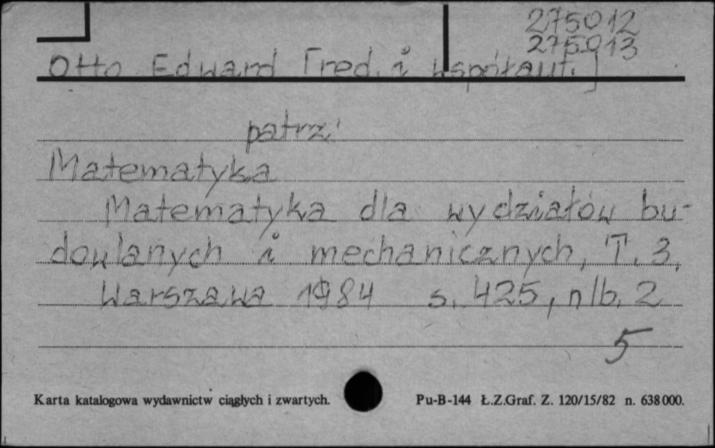 275012
275013
Otto Edward [red. i współaut.]
patrz:
Matematyka
Matematyka dla wydziałów bu-
dowlanych i mechanicznych, T. 3.
Warszawa 1984 s. 425, nlb. 2
5
Karta katalogowa wydawnictw ciągłych i zwartych. Pu-B-144 Ł.Z.Graf. Z. 120/15/82 n. 638000.